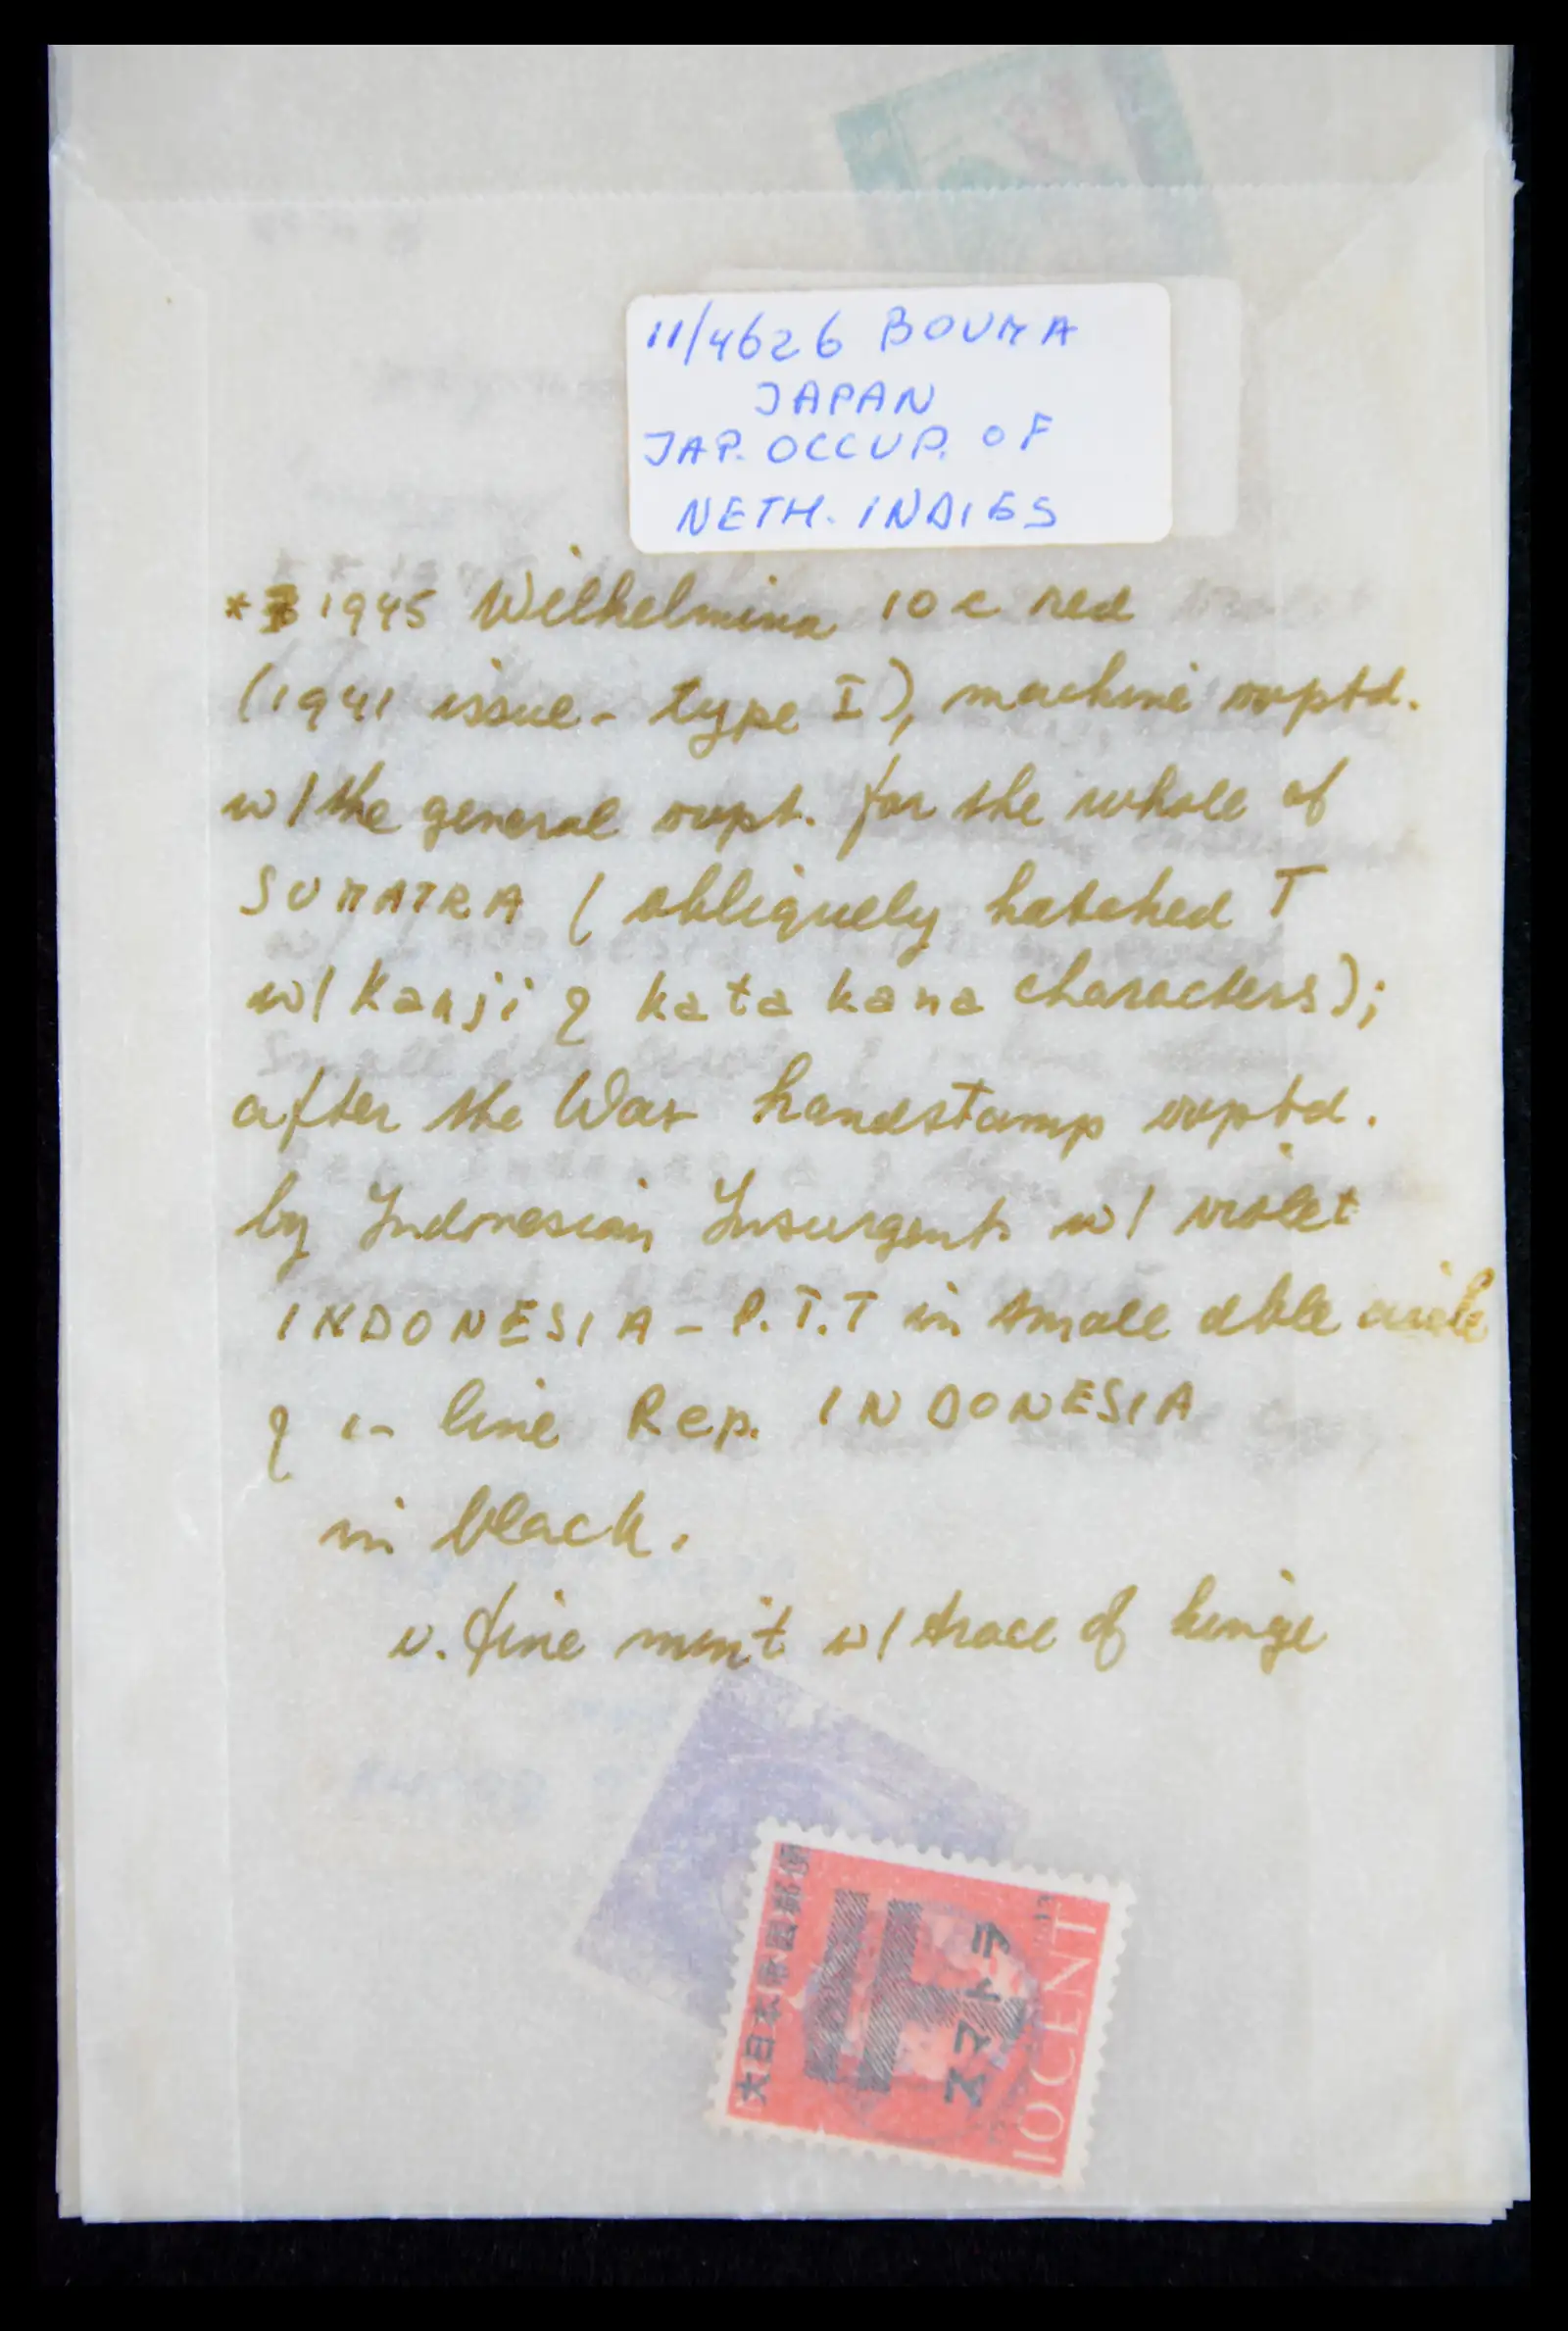 11/4626 BOUMA
JAPAN
JAP. OCCUP. OF
NETH. INDIES
* 1945 Wilhelmina 10 c red
(1941 issue - type I), machine ovptd.
w/ the general ovpt. for the whole of
SUMATRA (obliquely hatched T
w/ Kanji & kata kana characters);
after the War handstamp ovptd.
by Indonesian Insurgents w/ violet
INDONESIA - P.T.T in small dble circle
& 1- line Rep. INDONESIA
in black.
v. fine mint w/ trace of hinge
大日本帝国郵便
スマトラ
10 CENT